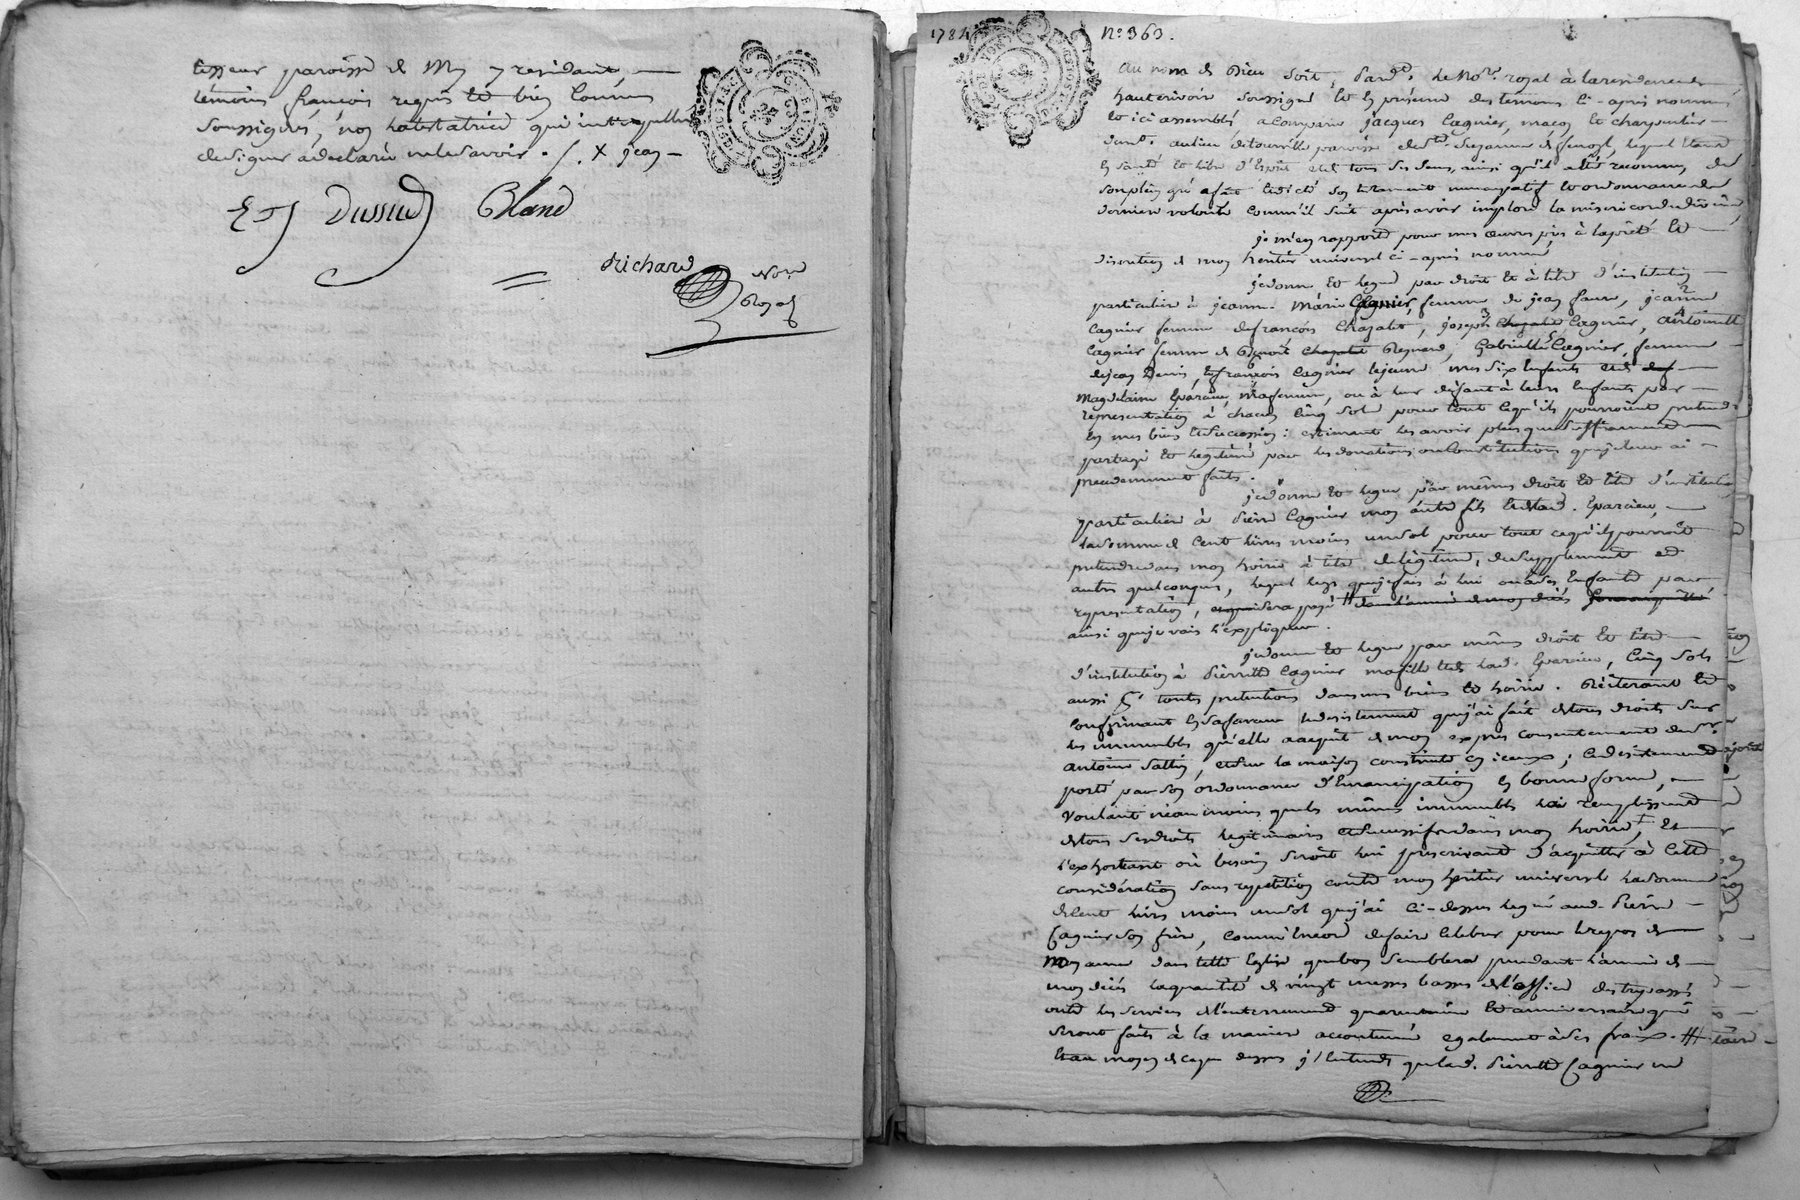 tisseur paroisse de My y residant,
témoins françois requis et bien connus
soussignés, non la testatrice qui interpellée
de signer a déclaré ne le savoir. /. X jean
Dussud Bland
Richard Nore
Royal
1784 No 363.
Au nom de Dieu soit, Pardt. le Nore. royal à la residence de
hauterivoir soussigné et en présence des temoins ci-après nommés
et ici assemblés, a comparu jacques Cagnier, maçon et charpentier
au lieu de paroisse de Ste. Suzanne lequel étant
en santé et libre d'esprit et de tous ses sens, ainsi qu'il a été reconnu, de
son plein gré a fait et dicté son testament nuncupatif et ordonnance de
derniere volonté comm'il suit après avoir imploré la misericorde divine,
je m'en rapporte pour mes œuvres pies à la piété et
discretion de mon heritier universel ci-après nommé,
je donne et legue par droit et à titre d'institution
particuliere à jeanne Marie Cagnier, femme de jean faure, jeanne
Cagnier femme de françois Chazalet, joseph Cagnier, Antoinette
Cagnier femme de Benoit Chazalet Reynard, Gabrielle Cagnier, femme
de jean Denis, et françois Cagnier le jeune mes six enfants et de
Magdelaine Eparcieu, ma femme, ou à leur défaut à leurs enfants par
representation à chacun cinq sols pour tout ce qu'ils pourroient pretendre
en mes biens et succession: estimant les avoir plus que suffisamment
partagé et legitimé par les donations ou constitutions que je leur ai
precedemment faits.
je donne et legue par mêmes droit et titre d'institution
particuliere à Pierre Cagnier mon autre fils et de lad. Eparcieu,
la somme de cent livres moins un sol pour tout ce qu'il pourroit
pretendre dans mon hoirie à titre de légitime, de supplement et
autres quelconques, lequel legs que je fais à lui ou à ses enfants par
representation, sera payé dans l'année de mon décès
ainsi que je vais l'expliquer.
je donne et legue par mêmes droit et titre
d'institution à Pierrette Cagnier ma fille et de lad. Eparcieu, cinq sols
aussi pr. toutes pretentions dans mes biens et hoirie. Réiterant et
confirmant en sa faveur le desistement que j'ai fait de tous droits sur
les immeubles qu'elle a acquit de mon exprès consentement de
antoine Sattin, et sur la maison construite en iceux; ce desistement
porté par son ordonnance d'Emancipation en bonne forme,
voulant néanmoins que les mêmes immeubles lui remplissent
de tous ses droits legitimaires et successifs dans mon hoirie, Et
l'exhortant où besoin seroit lui prescrivant d'acquitter à cette
considération sans repetition contre mon heritier universel la somme
de cent livres moins un sol que j'ai ci-dessus legué aud. Pierre
Cagnier son frère, comm'encore de faire celebrer pour le repos de
mon ame dans telle Eglise que bon semblera pendant l'année de
mon décès la quantité de vingt messes basses de l'office des trépassés
outre les services d'enterrement quarantaine et anniversaire qui
seront faits à la maniere accoutumée egalement à ses fraix.
et au moyen de ce que dessus j'entends que lad. Pierrette Cagnier ne